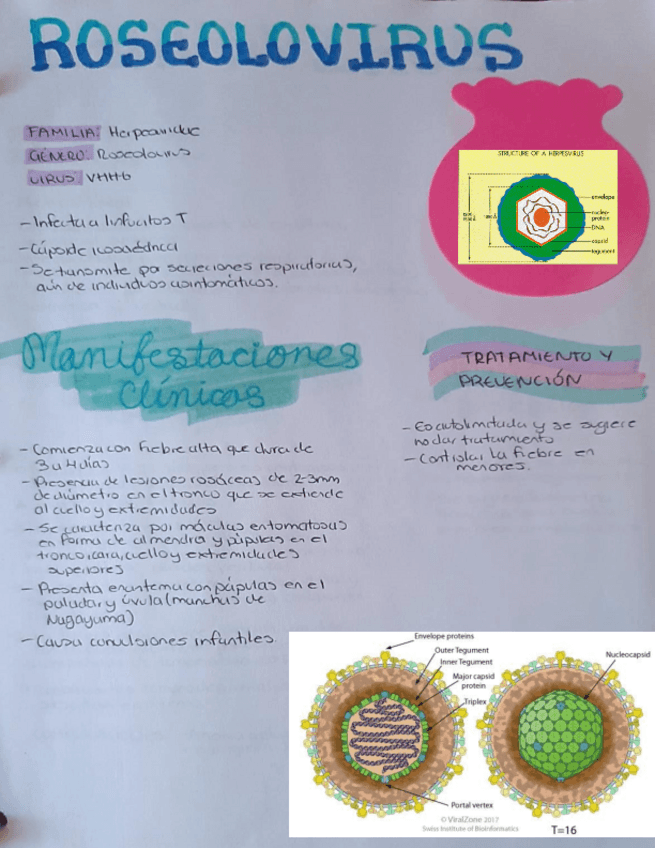 ROSEOLOVIRUS
FAMILIA: Herpesviridae
GÉNERO: Roseolovirus
VIRUS: VHH6
- Infecta a linfocitos T
- Cápside icosaédrica
- Se transmite por secreciones respiratorias,
aún de individuos asintomáticos.
STRUCTURE OF A HERPESVIRUS
envelope
nucleo-
protein
DNA
capsid
tegument
Manifestaciones
Clínicas
- Comienza con fiebre alta que dura de
3 u 4 días
- Presencia de lesiones rosáceas de 2-3mm
de diámetro en el tronco que se extiende
al cuello y extremidades
- Se caracteriza por máculas eritematosas
en forma de almendra y pápulas en el
tronco, cara, cuello y extremidades
superiores
- Presenta enantema con pápulas en el
paladar y úvula (manchas de
Nagayama)
- Causa convulsiones infantiles.
TRATAMIENTO Y
PREVENCIÓN
- Es autolimitada y se sugiere
no dar tratamiento
- Controlar la fiebre en
menores.
Envelope proteins
Outer Tegument
Inner Tegument
Major capsid
protein
Triplex
Portal vertex
Nucleocapsid
© ViralZone 2017
Swiss Institute of Bioinformatics
T=16